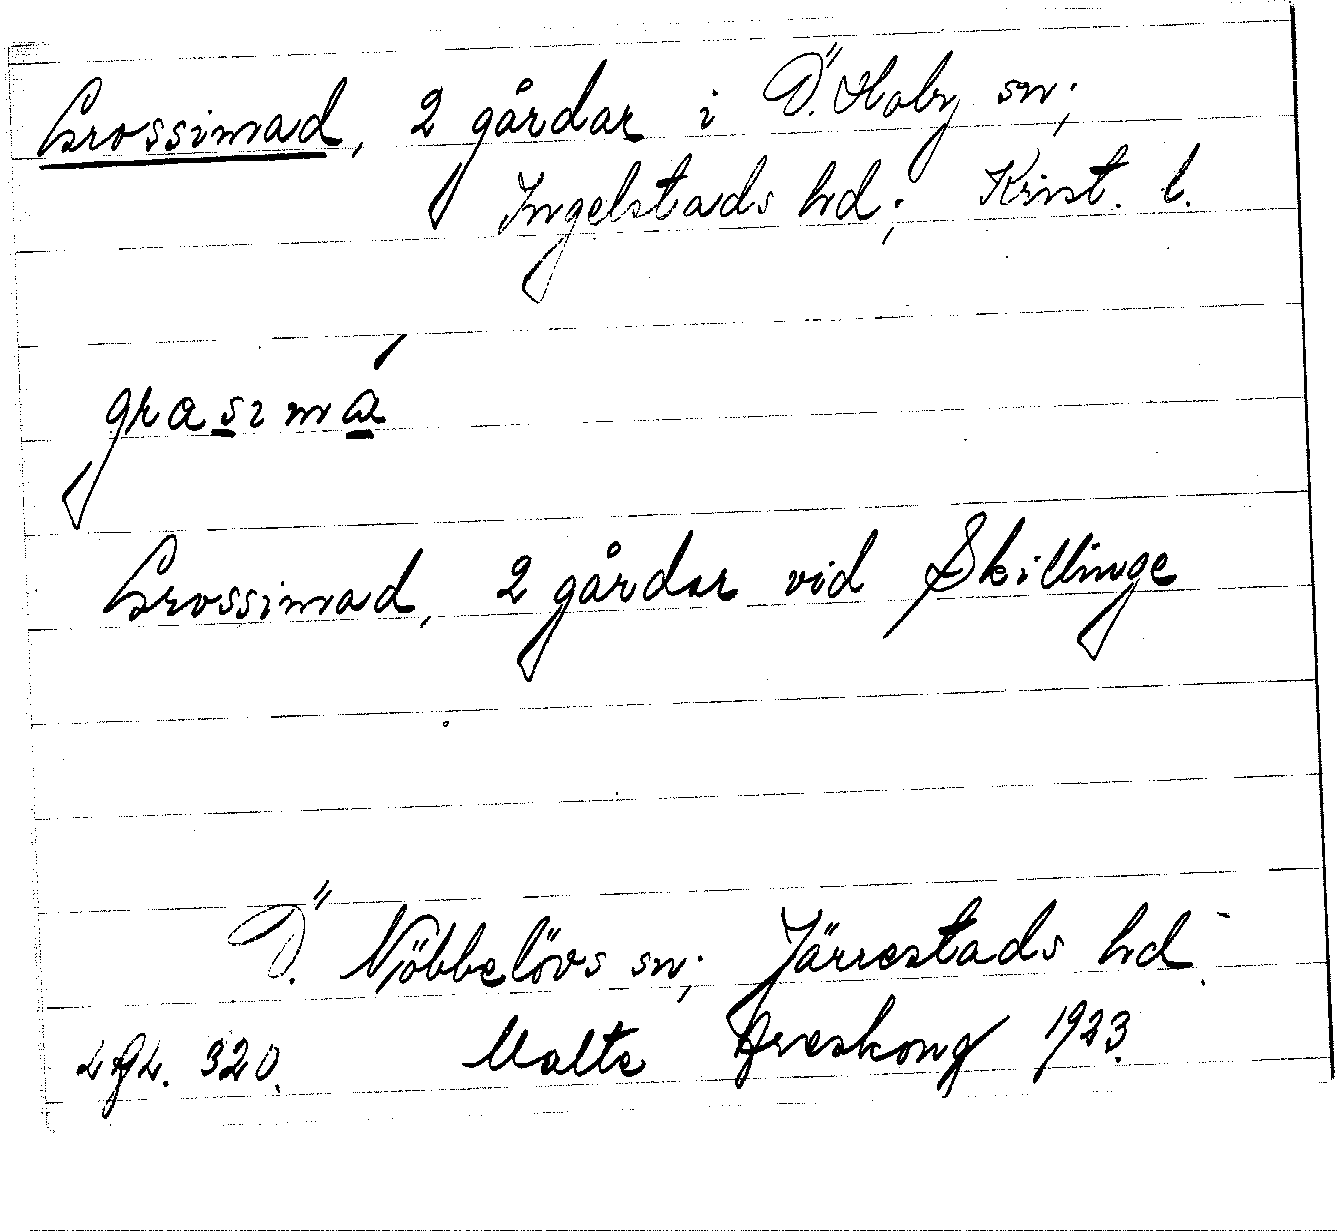 Grossimad, 2 gårdar i Ö. Hoby sn;
Ingelstads hd; Krist. l.
grasima
Grossimad, 2 gårdar vid Skillinge
Ö. Nöbbelövs sn; Järrestads hd.
320. Malte Areskoug 1923.